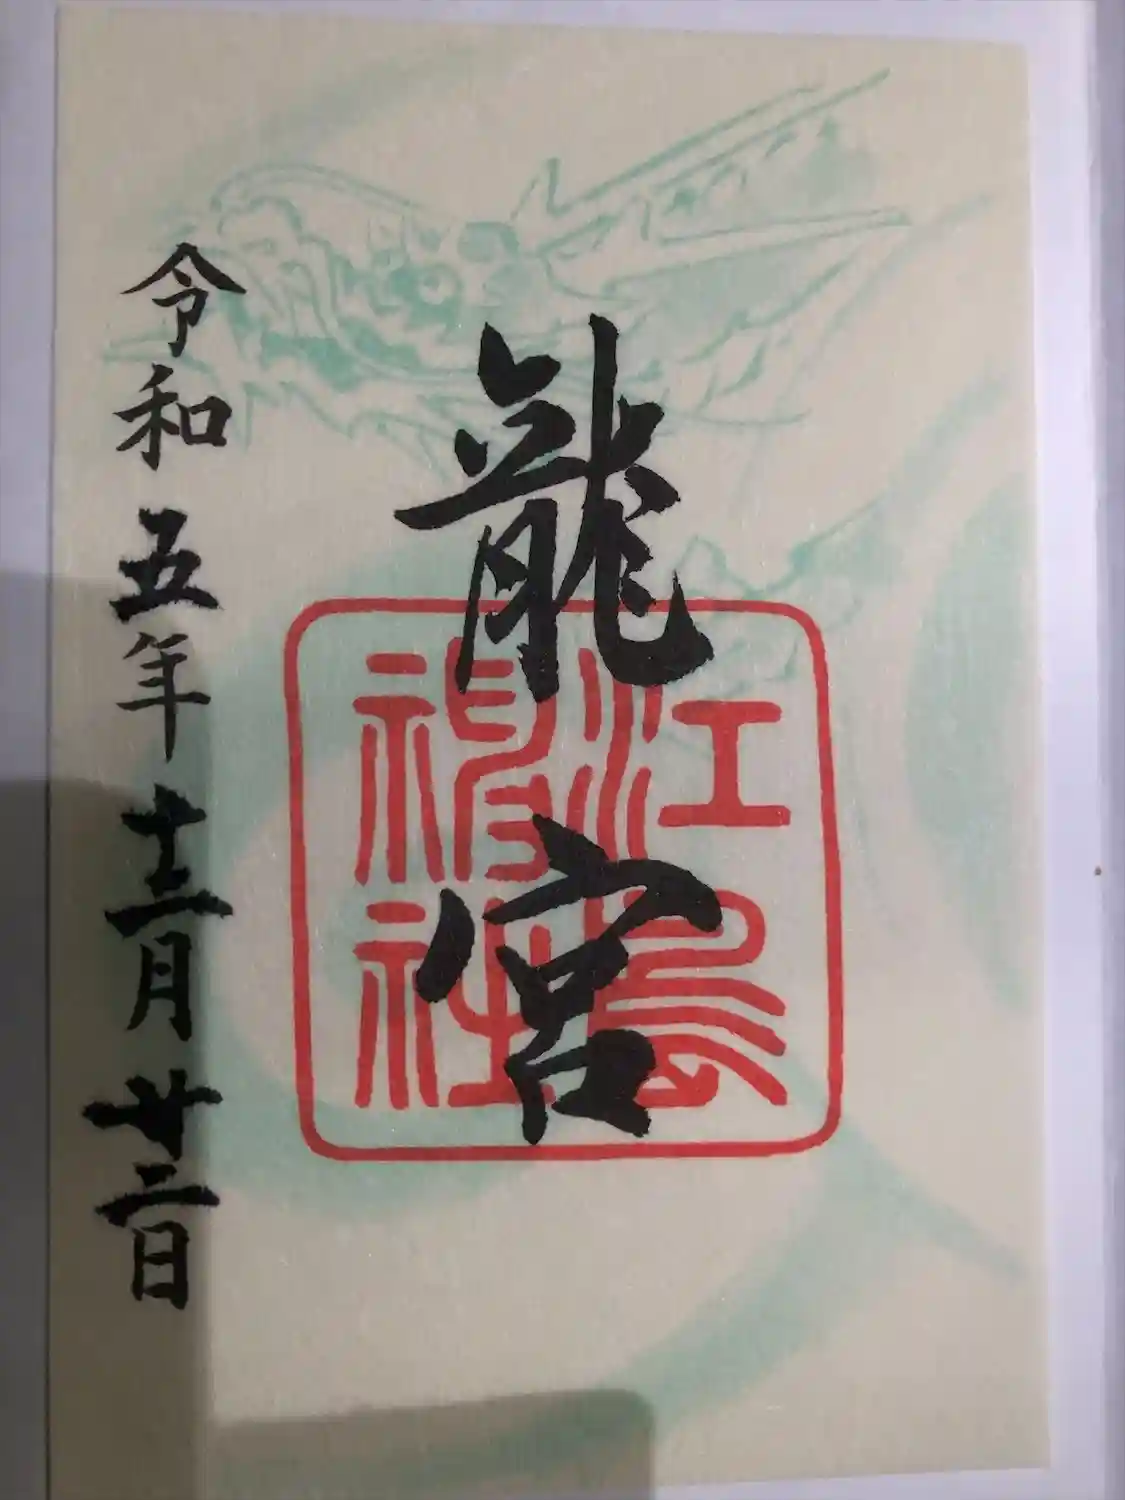 龍宮
江島神社
令和五年十二月廿二日